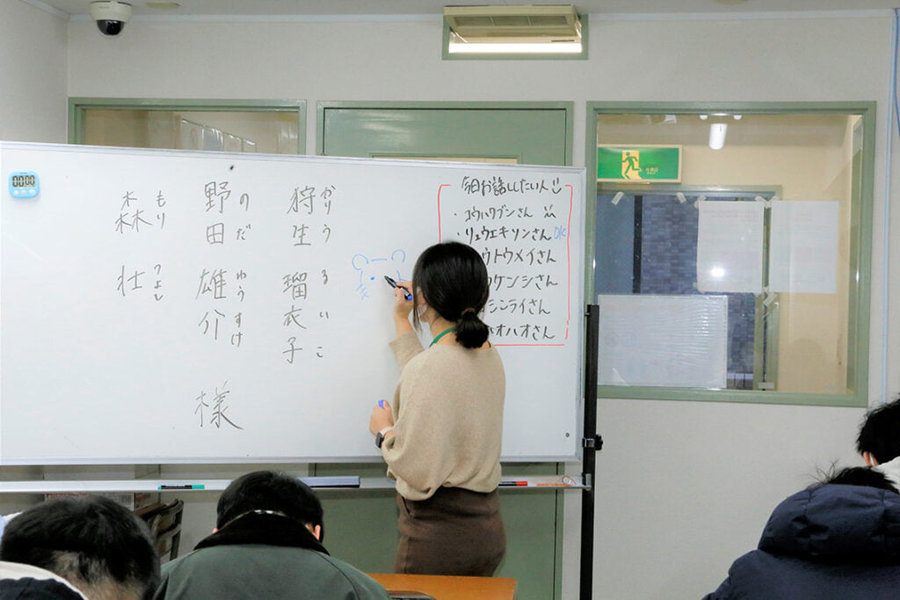 狩生 瑠衣子
かりう るいこ
野田 雄介
のだ ゆうすけ
森 壮
もり つよし
様
今日お話ししたい人
・コウハクブンさん
・リュウエキソンさん OK
ウトウメイさん
ケンシさん
シンライさん
オハオさん
00:00